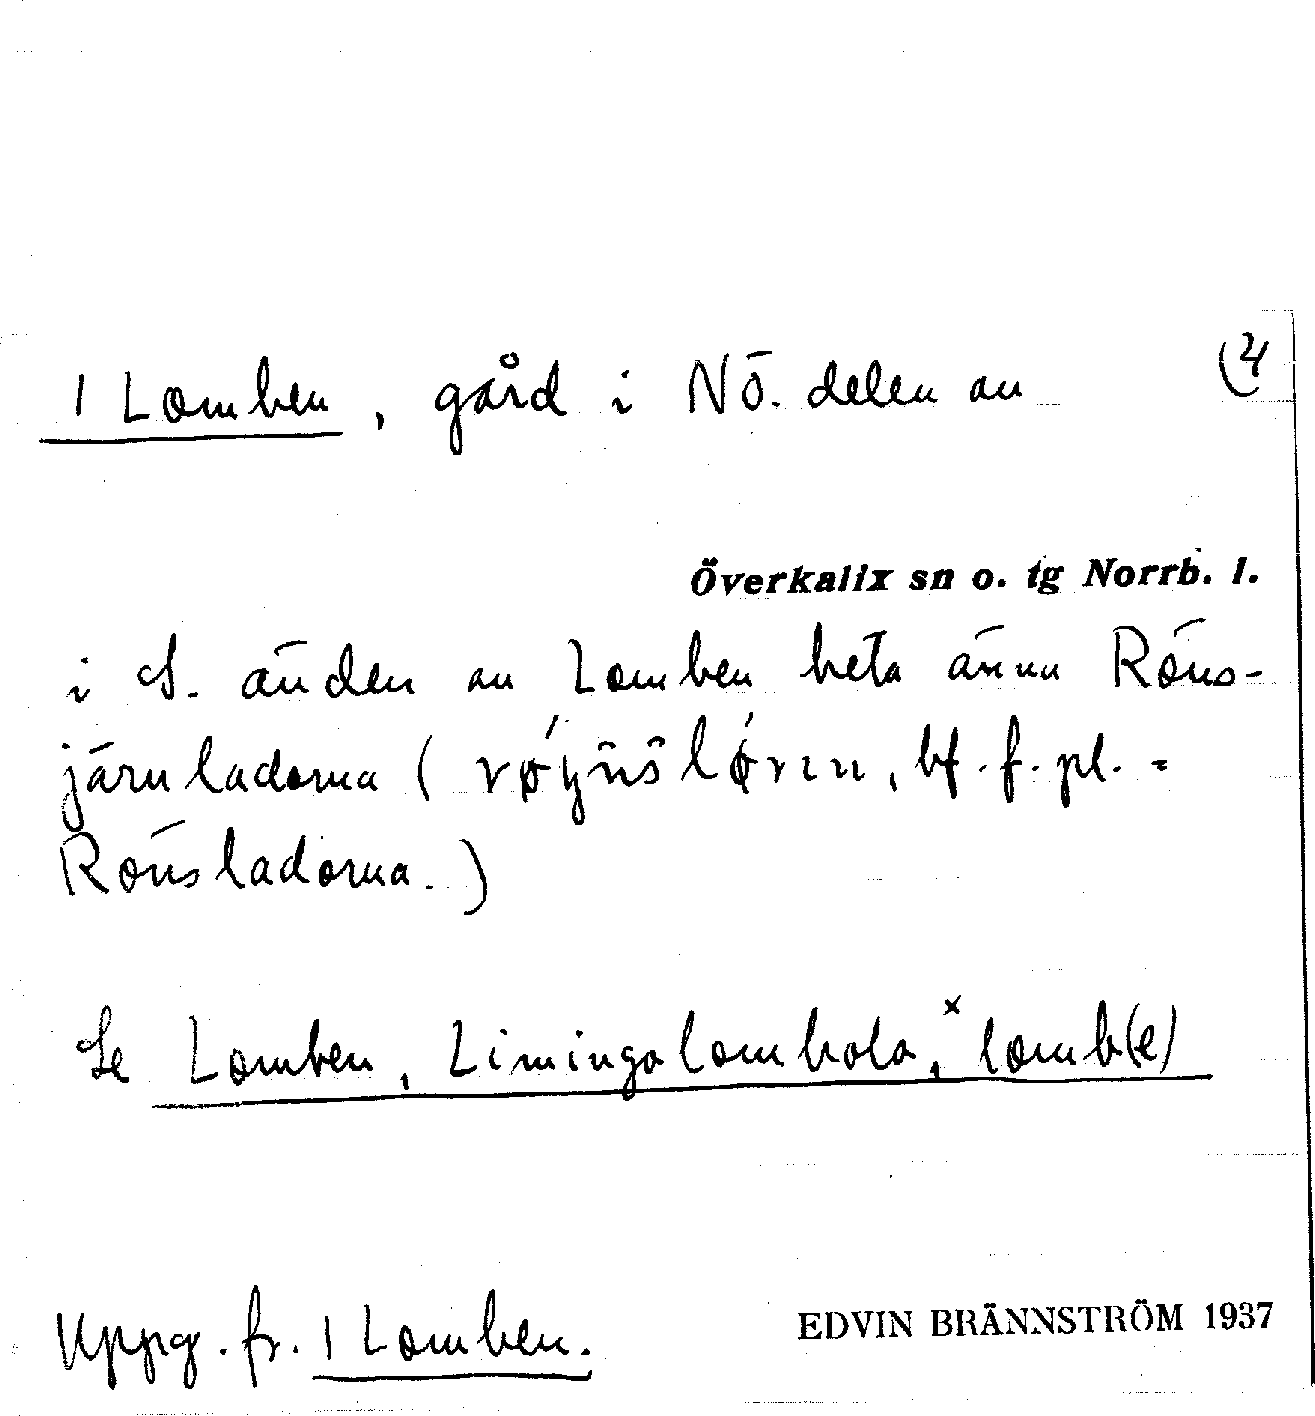 1 Lomben, gård i NÖ. delen av
(4
Överkalix sn o. tg Norrb. l.
i S. änden av Lomben heta ännu Röns-
järnladorna ( bf. f. pl. =
Rönsladorna.)
Se Lomben, Limingolombolo, ×lomb(e)
Uppg. fr. 1 Lomben.
EDVIN BRÄNNSTRÖM 1937